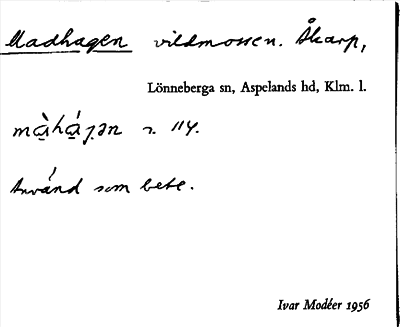 Madhagen vildmossen. Åkarp,
Lönneberga sn, Aspelands hd, Klm. l.
màhágən n. 114.
Använd som bete.
Ivar Modéer 1956